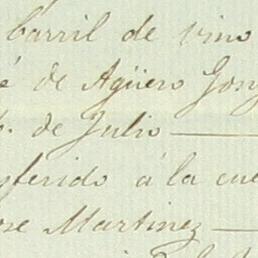 barril de vino
é de Agüero Gonz
de Julio
sferido á la cue
ose Martinez